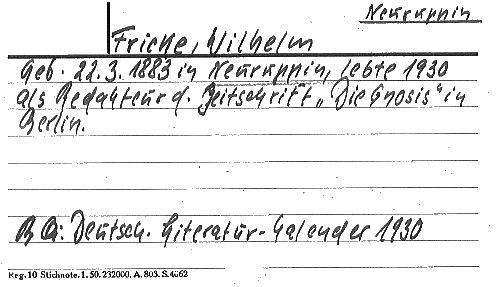 Neuruppin
Fricke, Wilhelm
Geb. 22.3.1883 in Neuruppin, lebte 1930
als Redakteur d. Zeitschrift „Die Gnosis“ in
Berlin.
B Q: Deutsch. Literatur-Kalender 1930
Reg. 10 Stichnote. 1. 50. 232000. A. 803. S. 4062